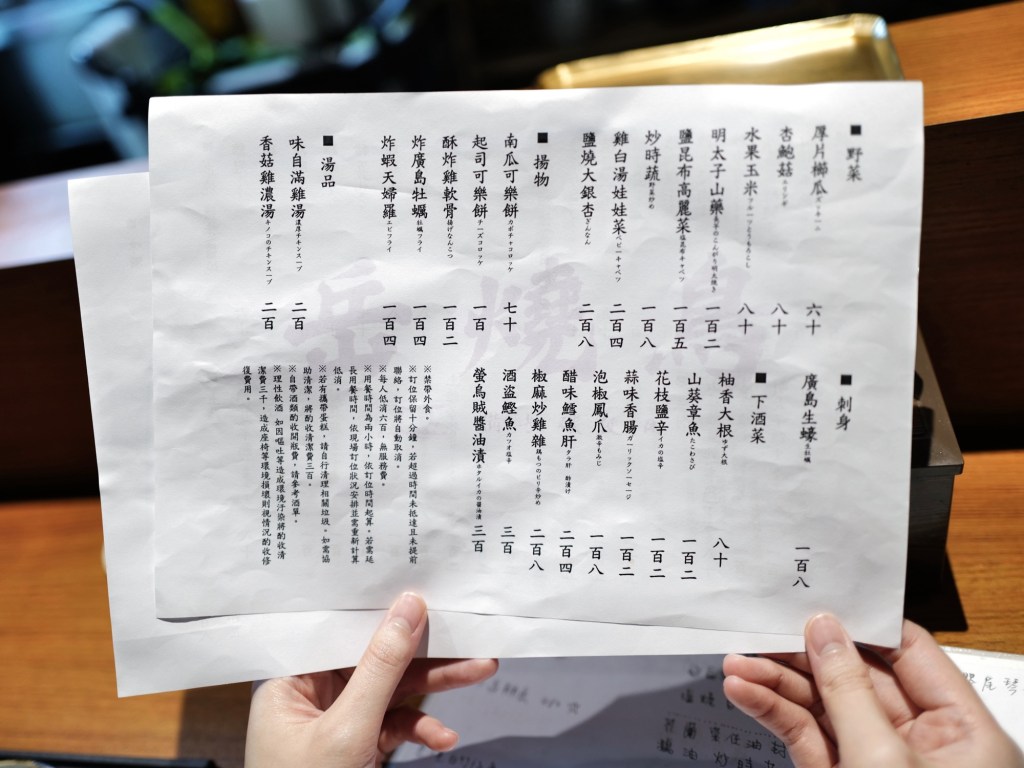 ■ 野菜
厚片櫛瓜 ズッキーニ 六十
杏鮑菇 エリンギ 八十
水果玉米 フルーツとうもろこし 八十
明太子山藥 一百二
鹽昆布高麗菜 塩昆布キャベツ 一百五
炒時蔬 野菜炒め 一百八
雞白湯娃娃菜 ベビーキャベツ 二百四
鹽燒大銀杏 ぎんなん 二百八
■ 揚物
南瓜可樂餅 カボチャコロッケ 七十
起司可樂餅 チーズコロッケ 一百
酥炸雞軟骨 揚げなんこつ 一百二
炸廣島牡蠣 牡蠣フライ 一百四
炸蝦天婦羅 エビフライ 一百四
■ 湯品
味自滿雞湯 濃厚チキンスープ 二百
香菇雞濃湯 キノコのチキンスープ 二百
■ 刺身
廣島生蠔 一百八
■ 下酒菜
柚香大根 ゆず大根 八十
山葵章魚 たこわさび 一百二
花枝鹽辛 イカの塩辛 一百二
蒜味香腸 ガーリックソーセージ 一百二
泡椒鳳爪 激辛もみじ 一百八
醋味鱈魚肝 タラ肝 酢漬け 二百四
椒麻炒雞雜 鶏もつのピリ辛炒め 二百八
酒盜鰹魚 カツオ塩辛 三百
螢烏賊醬油漬 ホタルイカの醤油漬 三百
※禁帶外食。
※訂位保留十分鐘，若超過時間未抵達且未提前
聯絡，訂位將自動取消。
※每人低消六百，無服務費。
※用餐時間為兩小時，依訂位時間起算。若需延
長用餐時間，依現場訂位狀況安排並需重新計算
低消。
※若有攜帶蛋糕，請自行清理相關垃圾。如需協
助清潔，將酌收清潔費三百。
※自帶酒類酌收開瓶費，請參考酒單。
※理性飲酒 如因嘔吐等造成環境汙染將酌收清
潔費三千，造成座椅等環境損壞則視情況酌收修
復費用。